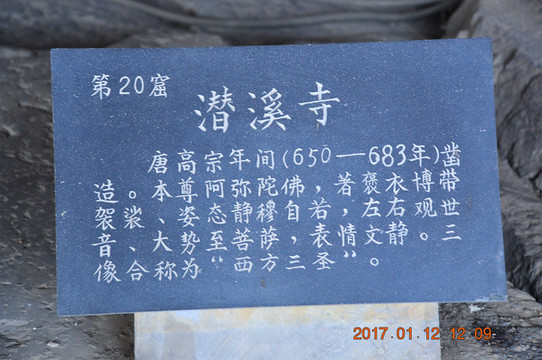 第20窟
潜溪寺
唐高宗年间(650—683年)凿
造。本尊阿弥陀佛，著褒衣博带
袈裟、姿态静穆自若，左右观世
音、大势至菩萨，表情文静。三
像合称为“西方三圣”。
2017.01.12 12:09